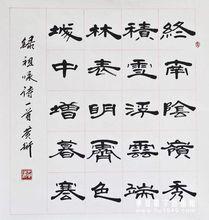 終南陰嶺秀
積雪浮雲端
林表明霽色
城中增暮寒
録祖咏诗一首